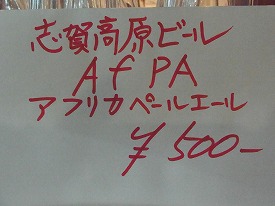 志賀高原ビール
AfPA
アフリカペールエール
¥500-